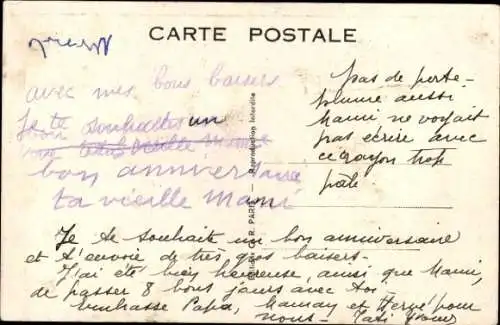 CARTE POSTALE
avec mes bons baisers
Je te souhaites un
bon anniversaire
ta vieille Mami
pas de porte-
plume aussi
Mami ne voyait
pas écrire avec
ce crayon trop
pâle
Reproduction Interdite
R. PARIS
Je te souhaite un bon anniversaire
et t'envoie de très gros baisers.
J'ai été bien heureuse, ainsi que Mami,
de passer 8 bons jours avec toi.
embrasse Papa, Maman et Hervé pour
nous. Tati